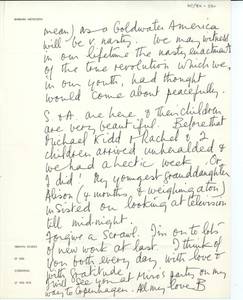 BARBARA HEPWORTH
mean) as a Goldwater America
will be v nasty. We may witness
in our lifetime the nasty enactments
of the true revolution which we,
in our youth, had thought
would come about peacefully.
S & A are here, & their children
are very beautiful. Before that
Michael Kidd & Rachel & 2
children arrived unheralded &
we had a hectic week. Or
I did! My youngest granddaughter
Alison (4 months, & weighing a ton)
insisted on looking at television
till mid-night.
Forgive a scrawl. I'm on to lots
of new work at last. I think of
you both every day with love &
with gratitude.
I will see you at Mire's party, on my
way to Copenhagen. All my love B
TREWYN STUDIO
ST IVES
CORNWALL